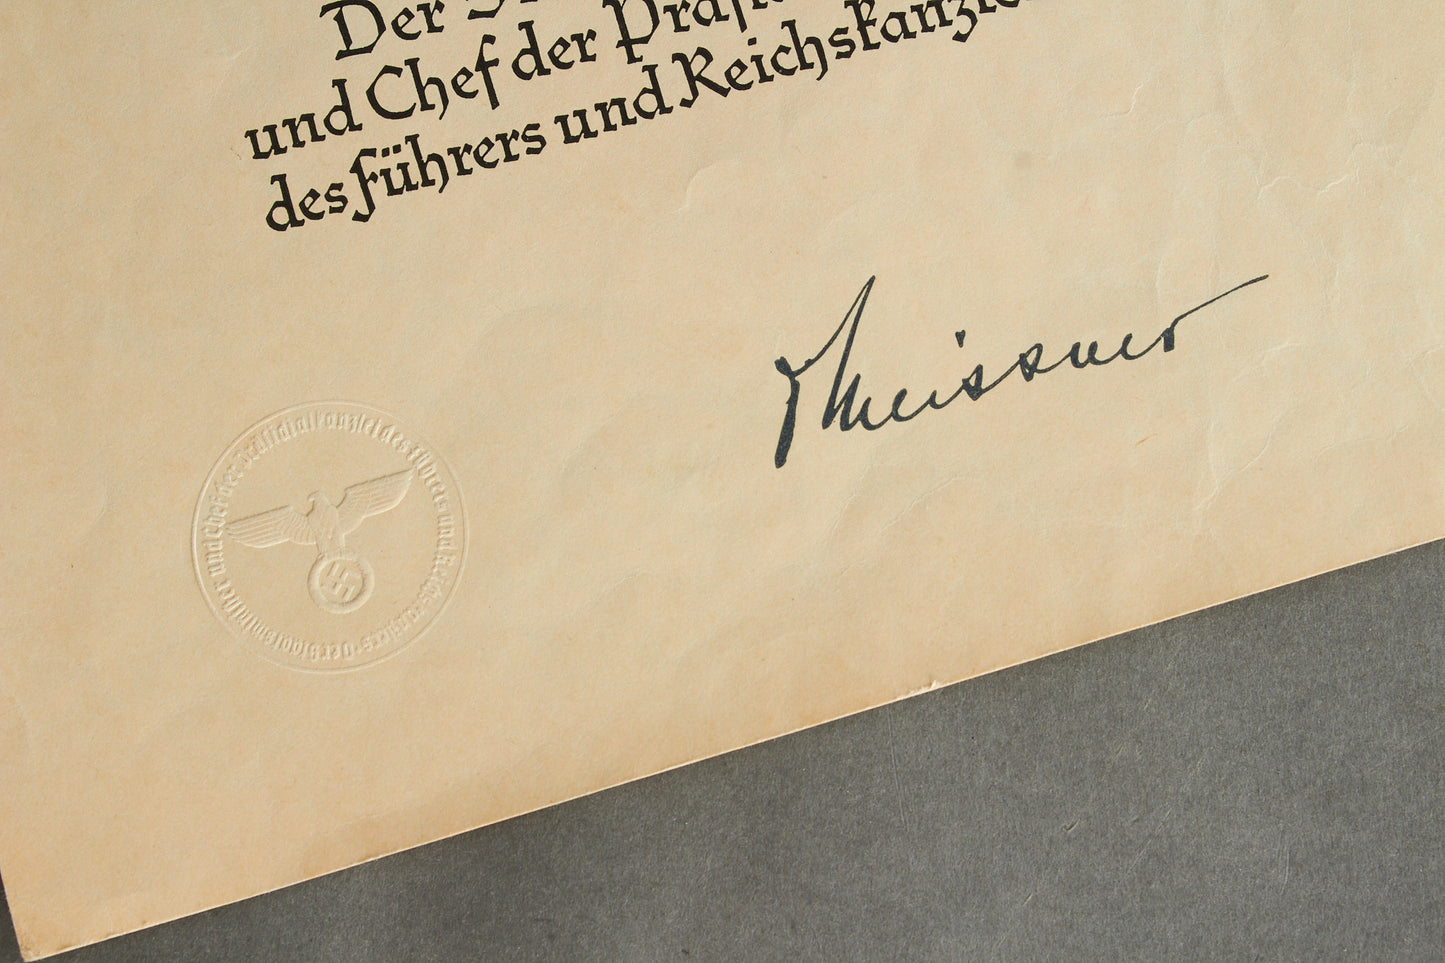 Der
und Chef der Präsi
des Führers und Reichskanzle
Meissner
Der Staatsminister und Chef der Präsidialkanzlei des Führers und Reichskanzlers